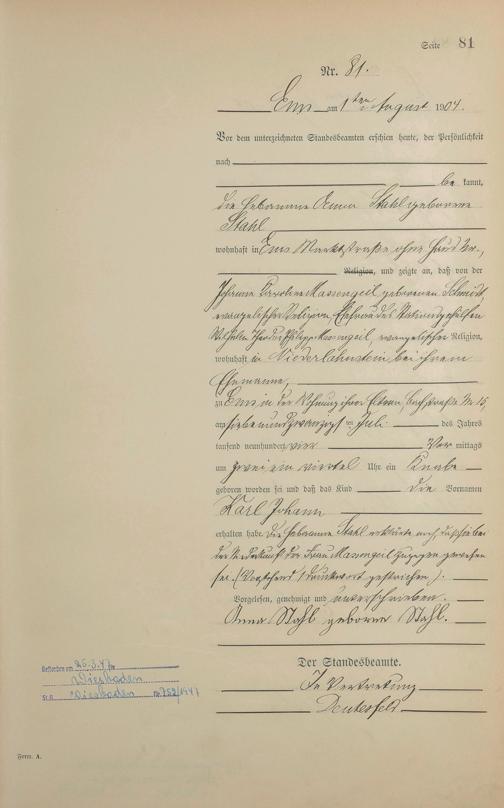 Seite 81
Nr. 81.
Ems am 1ten August 1904.
Vor dem unterzeichneten Standesbeamten erschien heute, der Persönlichkeit
nach
be kannt,
die Hebamme Anna Stahl geborene
Stahl
wohnhaft in Ems Marktstraße ohne Haus Nr.,
Religion, und zeigte an, daß von der
Johanna Karoline Massengeil geborenen Schmidt,
evangelischer Religion, Ehefrau des
Wilhelm Philipp Massengeil, evangelischer Religion,
wohnhaft in Niederlahnstein bei ihrem
Ehemanne,
zu Ems, in der Wohnung ihrer Eltern, Nr. 15,
am siebenundzwanzigsten Juli des Jahres
tausend neunhundert vier Vor mittags
um zwei ein viertel Uhr ein Knabe
geboren worden sei und daß das Kind die Vornamen
Karl Johann
erhalten habe. Die Hebamme Stahl erklärte noch daß sie bei
der Niederkunft der Frau Massengeil zugegen gewesen
sei. (Vorstehend 1 Druckwort gestrichen).
Vorgelesen, genehmigt und unterschrieben.
Anna Stahl geborene Stahl.
Der Standesbeamte.
In Vertretung
Gestorben am 26.3.47 in
Wiesbaden
St.A. Wiesbaden Nr. 752/1947
Form. A.